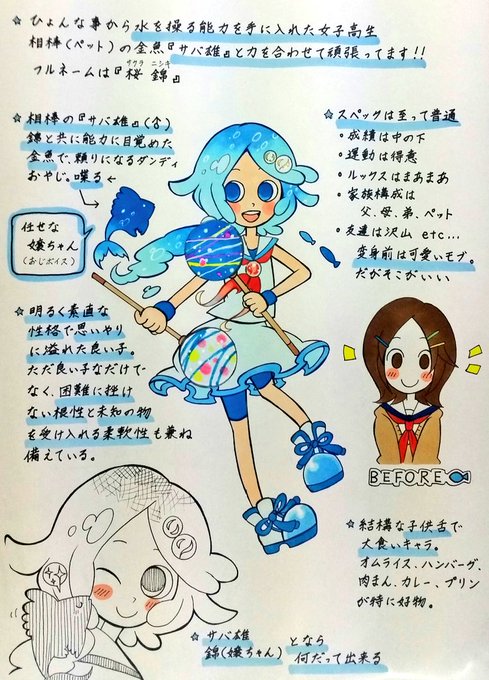 ☆ ひょんな事から水を操る能力を手に入れた女子高生
相棒(ペット)の金魚『サバ雄』と力を合わせて頑張ってます!!
フルネームは『桜 錦』
サクラ ニシキ
☆ 相棒の『サバ雄』(♂)
錦と共に能力に目覚めた
金魚で、頼りになるダンディ
おやじ。喋る←
任せな
嬢ちゃん
(おじボイス)
☆ 明るく素直な
性格で思いやり
に溢れた良い子。
ただ良い子なだけで
なく、困難に挫け
ない根性と未知の物
を受け入れる柔軟性も兼ね
備えている。
☆ スペックは至って普通
・成績は中の下
・運動は得意
・ルックスはまあまあ
・家族構成は
父、母、弟、ペット
・友達は沢山 etc...
変身前は可愛いモブ。
だがそこがいい
BEFORE
☆ 結構な子供舌で
大食いキャラ。
オムライス、ハンバーグ、
肉まん、カレー、プリン
が特に好物。
☆ サバ雄
錦(嬢ちゃん)
となら
何だって出来る